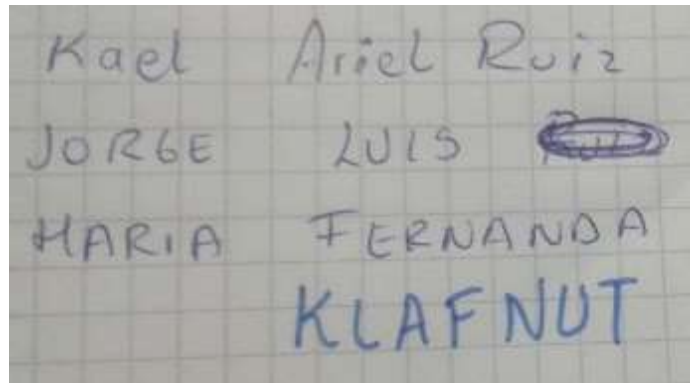 Kael Ariel Ruiz
JORGE LUIS
MARIA FERNANDA
KLAFNUT